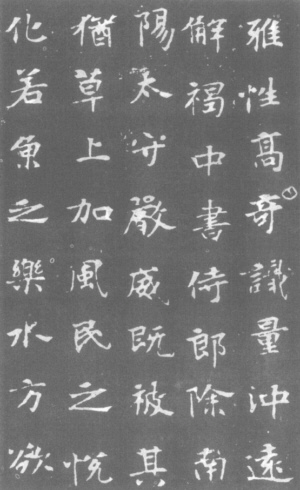 雅性高奇識量沖遠
解褐中書侍郎除南
陽太守嚴威既被其
猶草上加風民之悅
化若魚之樂水方欲